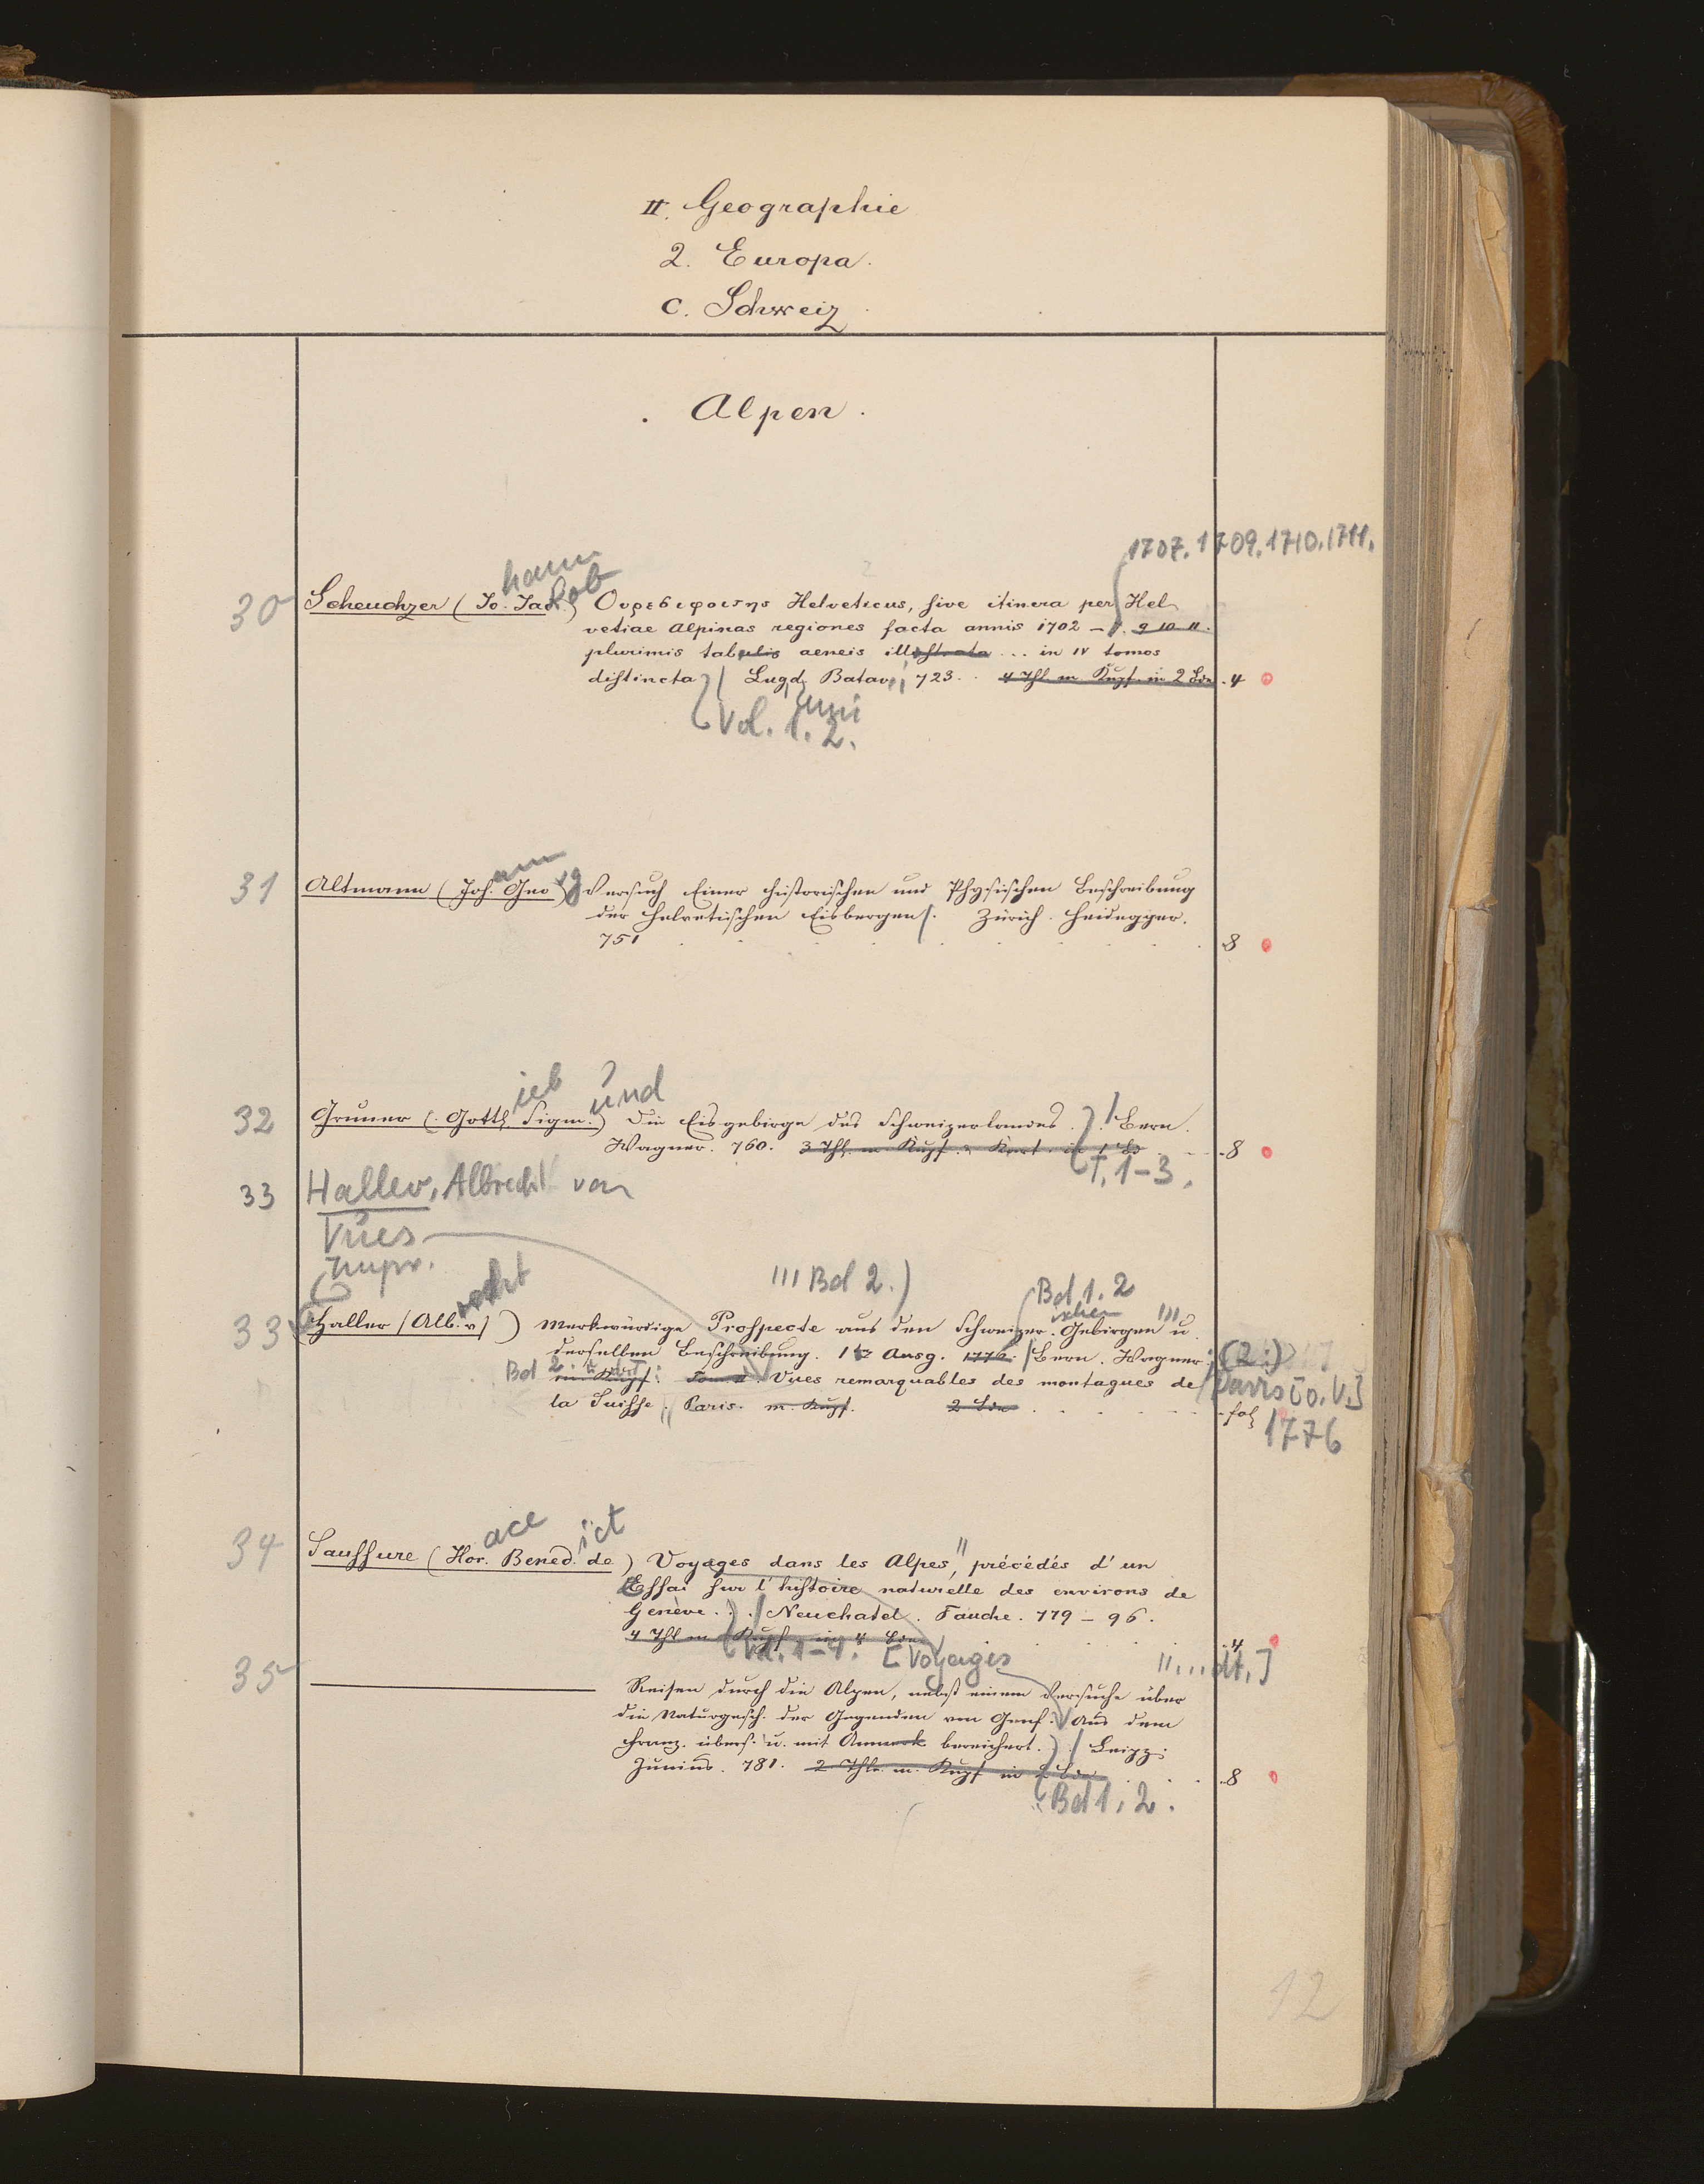 II. Geographie
2. Europa.
c. Schweiz.
Alpen.
1707. 1709. 1710. 1711.
hann
kob
30 Scheuchzer (Jo. Jac.) Ουρεσιφοιτης Helveticus, sive itinera per Hel
vetiae Alpinas regiones facta annis 1702 - 9 10 11.
plurimis tabulis aeneis illustrata ... in IV tomos
distincta Lugd. Batav. 723. 4 Thl m Kupf. in 2 Bdn 4
uni
Vol. 1. 2.
ann
31 Altmann (Joh. Geo rg) Versuch Einer historischen und Physischen Beschreibung
der helvetischen Eisbergen. Zürich. Heidegger.
751 8
ieb und
32 Gruner (Gottl. Sigm.) Die Eisgebirge des Schweizerlandes. Bern.
Wagner. 760. 3 Thl. m. Kupf. u Kart. in 1 Bd 8
T. 1-3.
33 Haller, Albrecht von
Vues
Impr.
recht
Bd 2.)
Bd 1. 2
ischen
33 Haller (Alb. v) Merkwürdige Prospecte aus den Schweizer. Gebirgen u.
derselben Beschreibung. 1te Ausg. 1776. Bern. Wagner. (2:)
Bd 2. Vues remarquables des montagues de Paris [o. V.]
la Suisse. Paris. m. Kupf. 2 Bde fol
1776
ace ict
34 Saussure (Hor. Bened. de) Voyages dans les Alpes, précédés d'un
Essai sur l'histoire naturelle des environs de
Genève. Neuchatel. Fauche. 779 - 96.
4 Thl m Kupf in 4 Bdn 4
Vol. 1-4. [Voyages ... dt.]
35 Reisen durch die Alpen, nebst einem Versuche über
die Naturgesch. der Gegenden von Genf. Aus dem
Franz. übers. u. mit Anmerk bereichert. Leipz.
Junius. 781. 2 Thle. m. Kupf in 2 Bdn 8
Bd 1. 2.
12